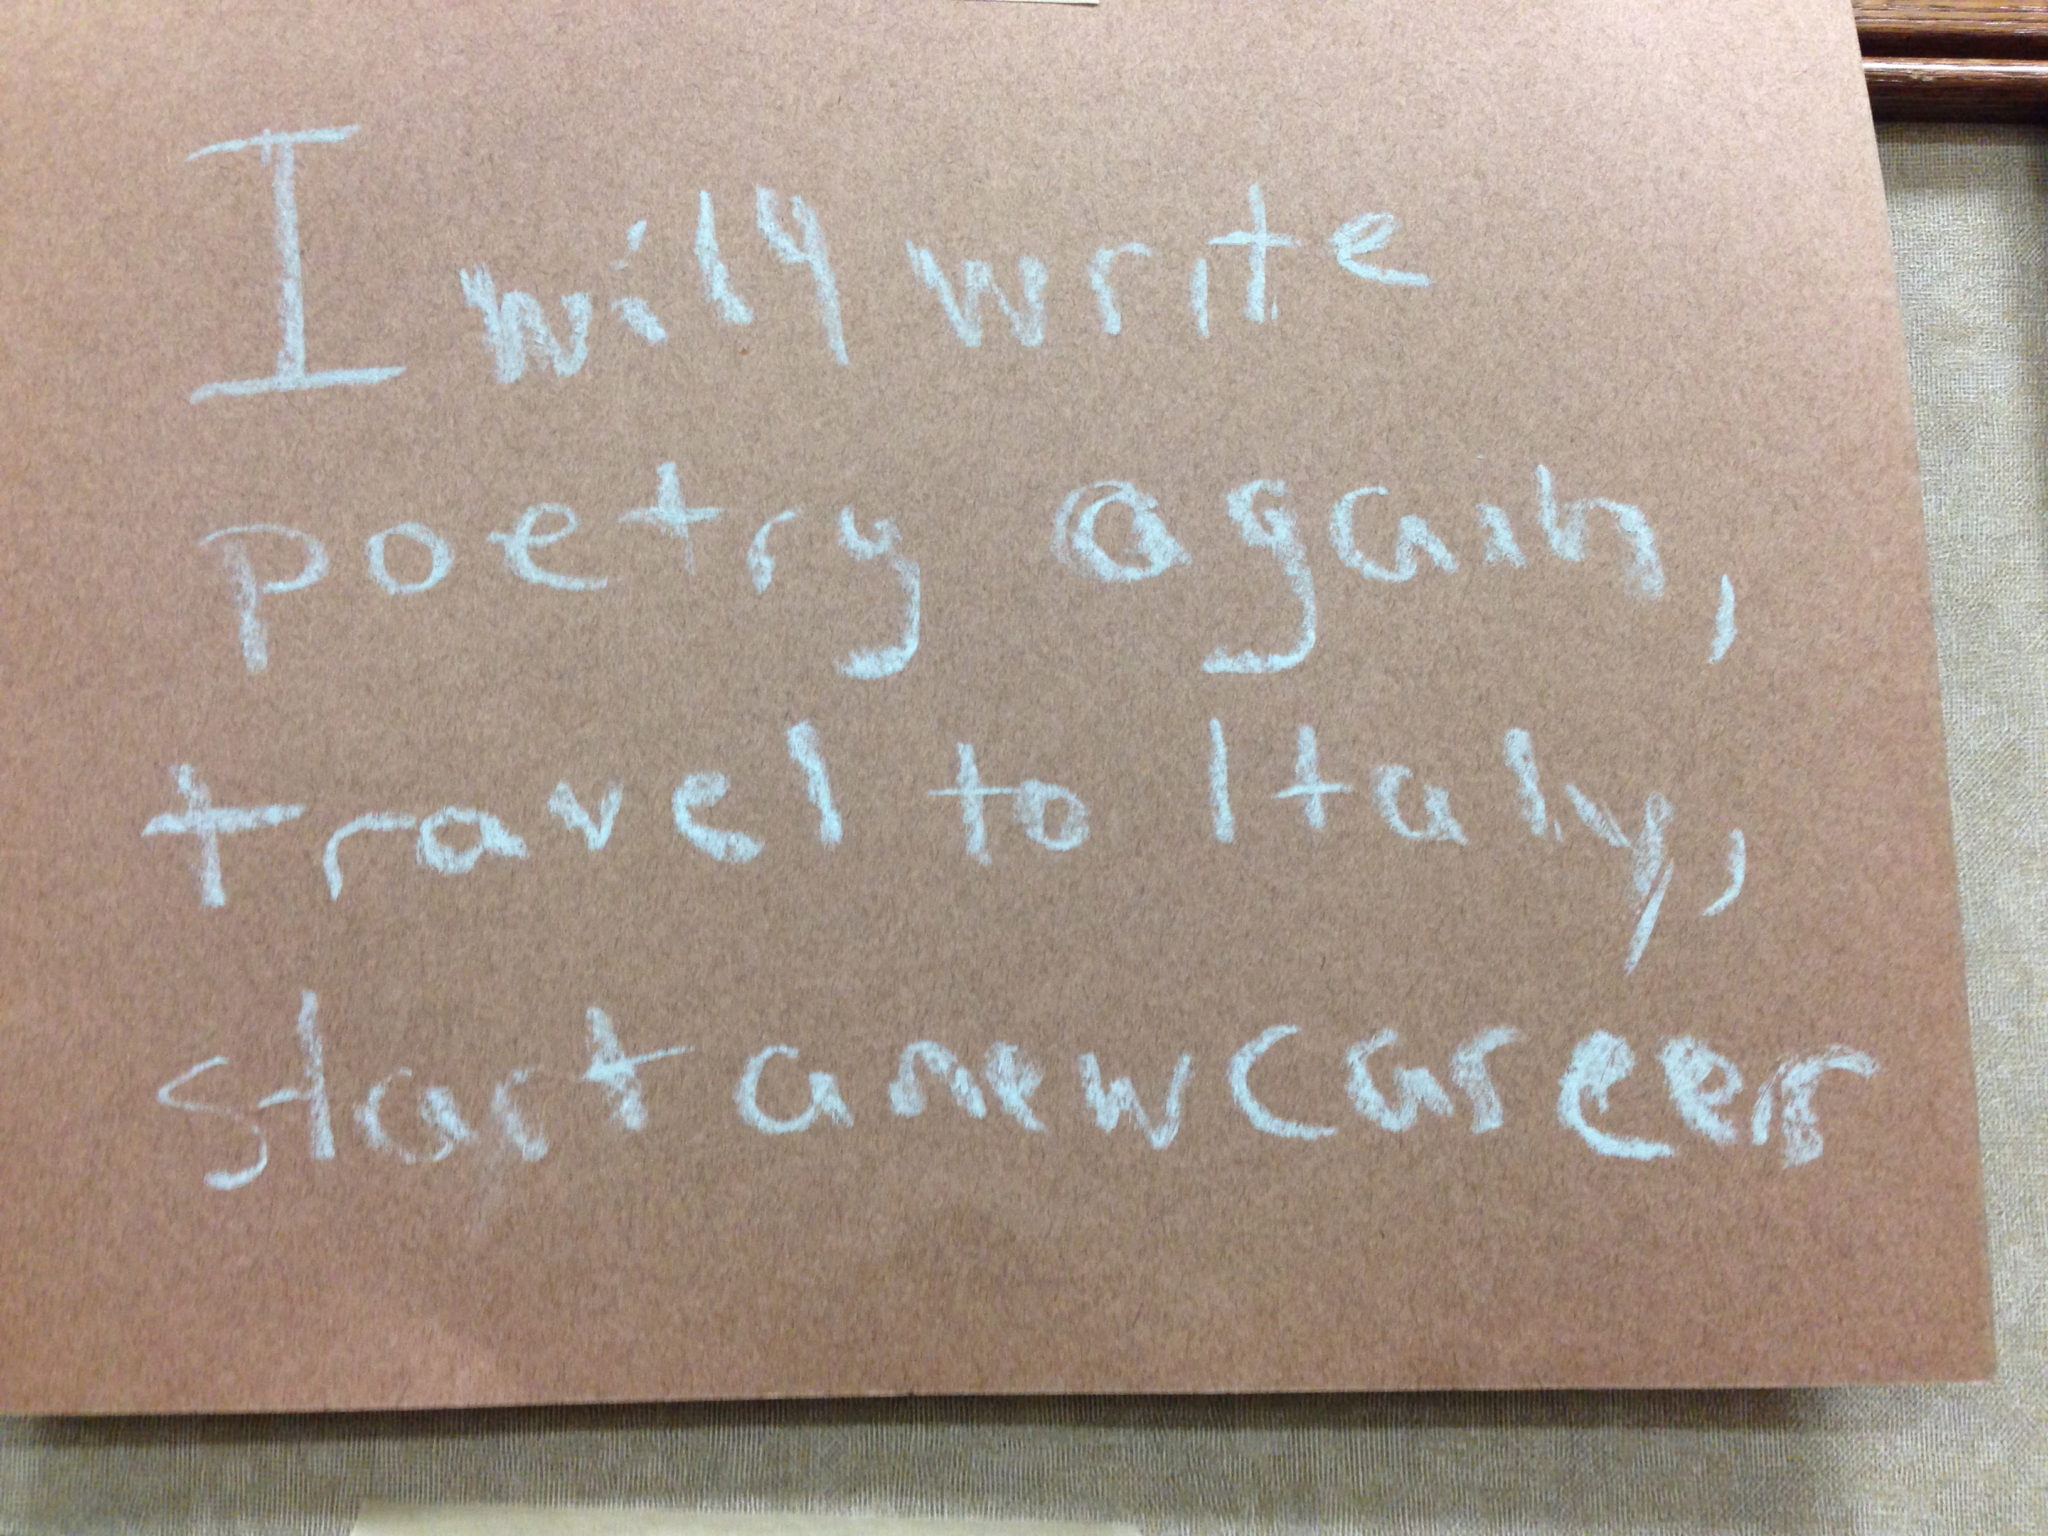 I will write
poetry again,
travel to Italy,
start a new career